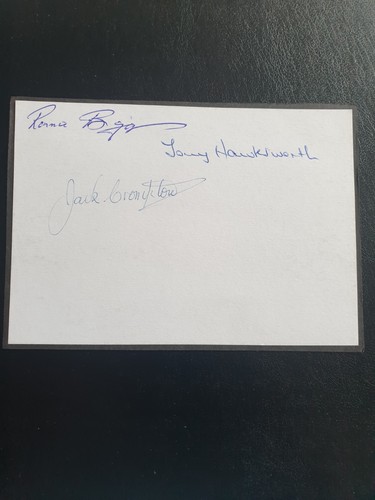 Ronnie Briggs
Tony Hawksworth
Jack. Crompton